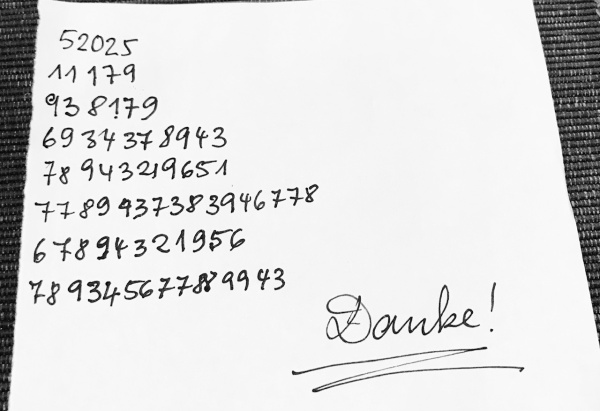 52025
11 179
938179
6934378943
78943219651
7789437383946778
67894321956
789345677889943
Danke!